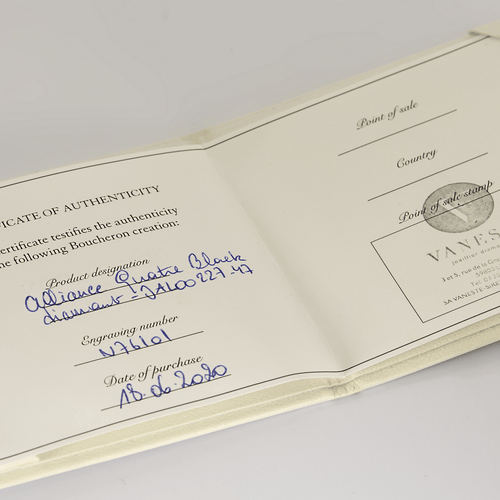 CERTIFICATE OF AUTHENTICITY
certificate testifies the authenticity
the following Boucheron creation:
Product designation
Alliance Quatre Black
diamant - JAL00227-47
Engraving number
N76101
Date of purchase
18.06.2020
Point of sale
Country
Point of sale stamp
V
VANES
joaillier diama
1 et 5, rue de la Gra
Tél.
SA VANESTE SIRE